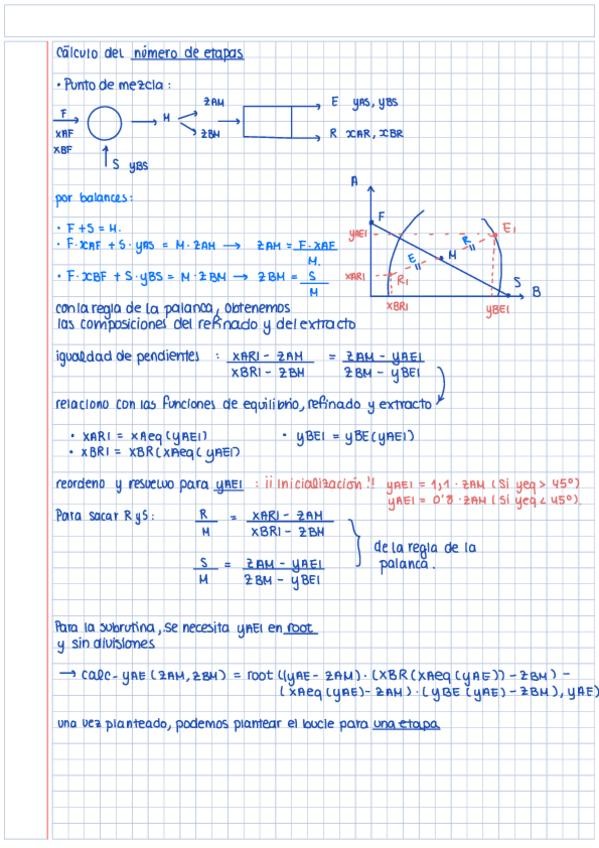 Cálculo del número de etapas
• Punto de mezcla:
F
xAF
xBF
S yBS
M
zAM
zBM
E yAS, yBS
R xAR, xBR
por balances:
• F+S = M.
• F·xAF + S·yAS = M·zAM → zAM = F·xAF
M.
• F·xBF + S·yBS = M·zBM → zBM = S
M
A
F
yAE1
E1
R
M
E
xAR1
R1
S
B
xBR1
yBE1
con la regla de la palanca, obtenemos
las composiciones del refinado y del extracto
igualdad de pendientes : xAR1 - zAM = zAM - yAE1
xBR1 - zBM zBM - yBE1
relaciono con las funciones de equilibrio, refinado y extracto
• xAR1 = xAeq(yAE1) • yBE1 = yBE(yAE1)
• xBR1 = xBR(xAeq(yAE1)
reordeno y resuelvo para yAE1 : ¡¡ Inicialización !! yAE1 = 1,1·zAM (Si yeq > 45º)
yAE1 = 0'8·zAM (Si yeq < 45º).
Para sacar R y S: R = xAR1 - zAM
M xBR1 - zBM
S = zAM - yAE1
M zBM - yBE1
de la regla de la
palanca.
Para la subrutina, se necesita yAE1 en root
y sin divisiones
→ calc-yAE(zAM, zBM) = root ((yAE - zAM)·(xBR(xAeq(yAE)) - zBM) -
(xAeq(yAE) - zAM)·(yBE(yAE) - zBM), yAE)
una vez planteado, podemos plantear el bucle para una etapa